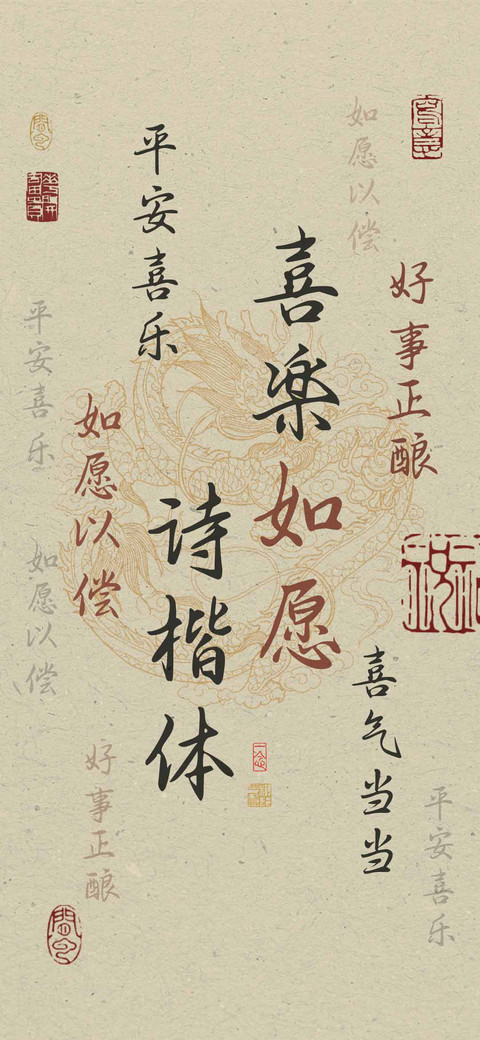 喜楽如愿
诗楷体
平安喜乐
如愿以偿
好事正酿
喜气当当
如愿以偿
平安喜乐
如愿以偿
好事正酿
平安喜乐
一念